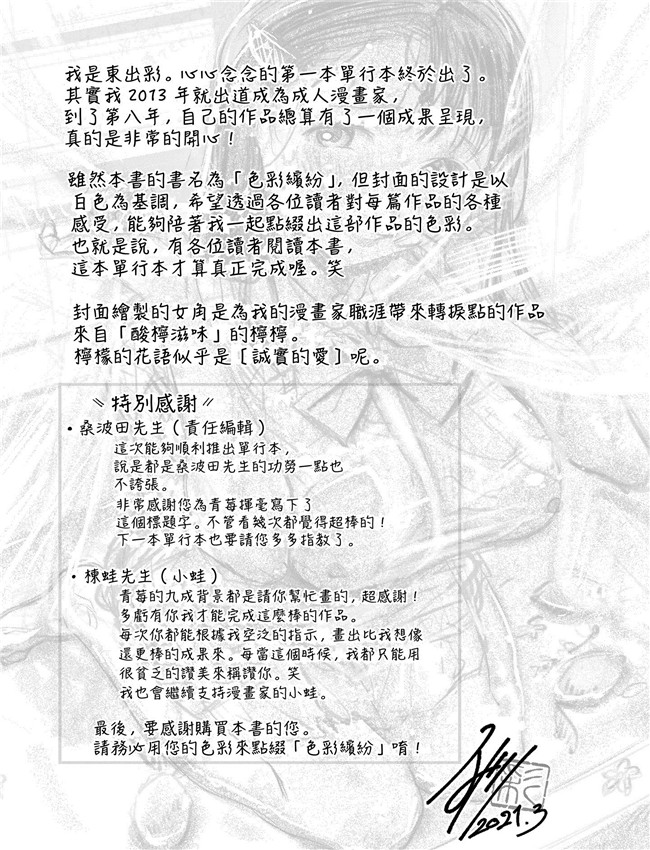 我是東出彩。心心念念的第一本單行本終於出了。
其實我2013年就出道成為成人漫畫家，
到了第八年，自己的作品總算有了一個成果呈現，
真的是非常的開心！
雖然本書的書名為「色彩繽紛」，但封面的設計是以
白色為基調，希望透過各位讀者對每篇作品的各種
感受，能夠陪著我一起點綴出這部作品的色彩。
也就是說，有各位讀者閱讀本書，
這本單行本才算真正完成喔。笑
封面繪製的女角是為我的漫畫家職涯帶來轉捩點的作品
來自「酸檸滋味」的檸檸。
檸檬的花語似乎是［誠實的愛］呢。
特別感謝
・桑波田先生（責任編輯）
這次能夠順利推出單行本，
說是都是桑波田先生的功勞一點也
不誇張。
非常感謝您為青莓揮毫寫下了
這個標題字。不管看幾次都覺得超棒的！
下一本單行本也要請您多多指教了。
・棟蛙先生（小蛙）
青莓的九成背景都是請你幫忙畫的，超感謝！
多虧有你我才能完成這麼棒的作品。
每次你都能根據我空泛的指示，畫出比我想像
還更棒的成果來。每當這個時候，我都只能用
很貧乏的讚美來稱讚你。笑
我也會繼續支持漫畫家的小蛙。
最後，要感謝購買本書的您。
請務必用您的色彩來點綴「色彩繽紛」唷！
2021.3